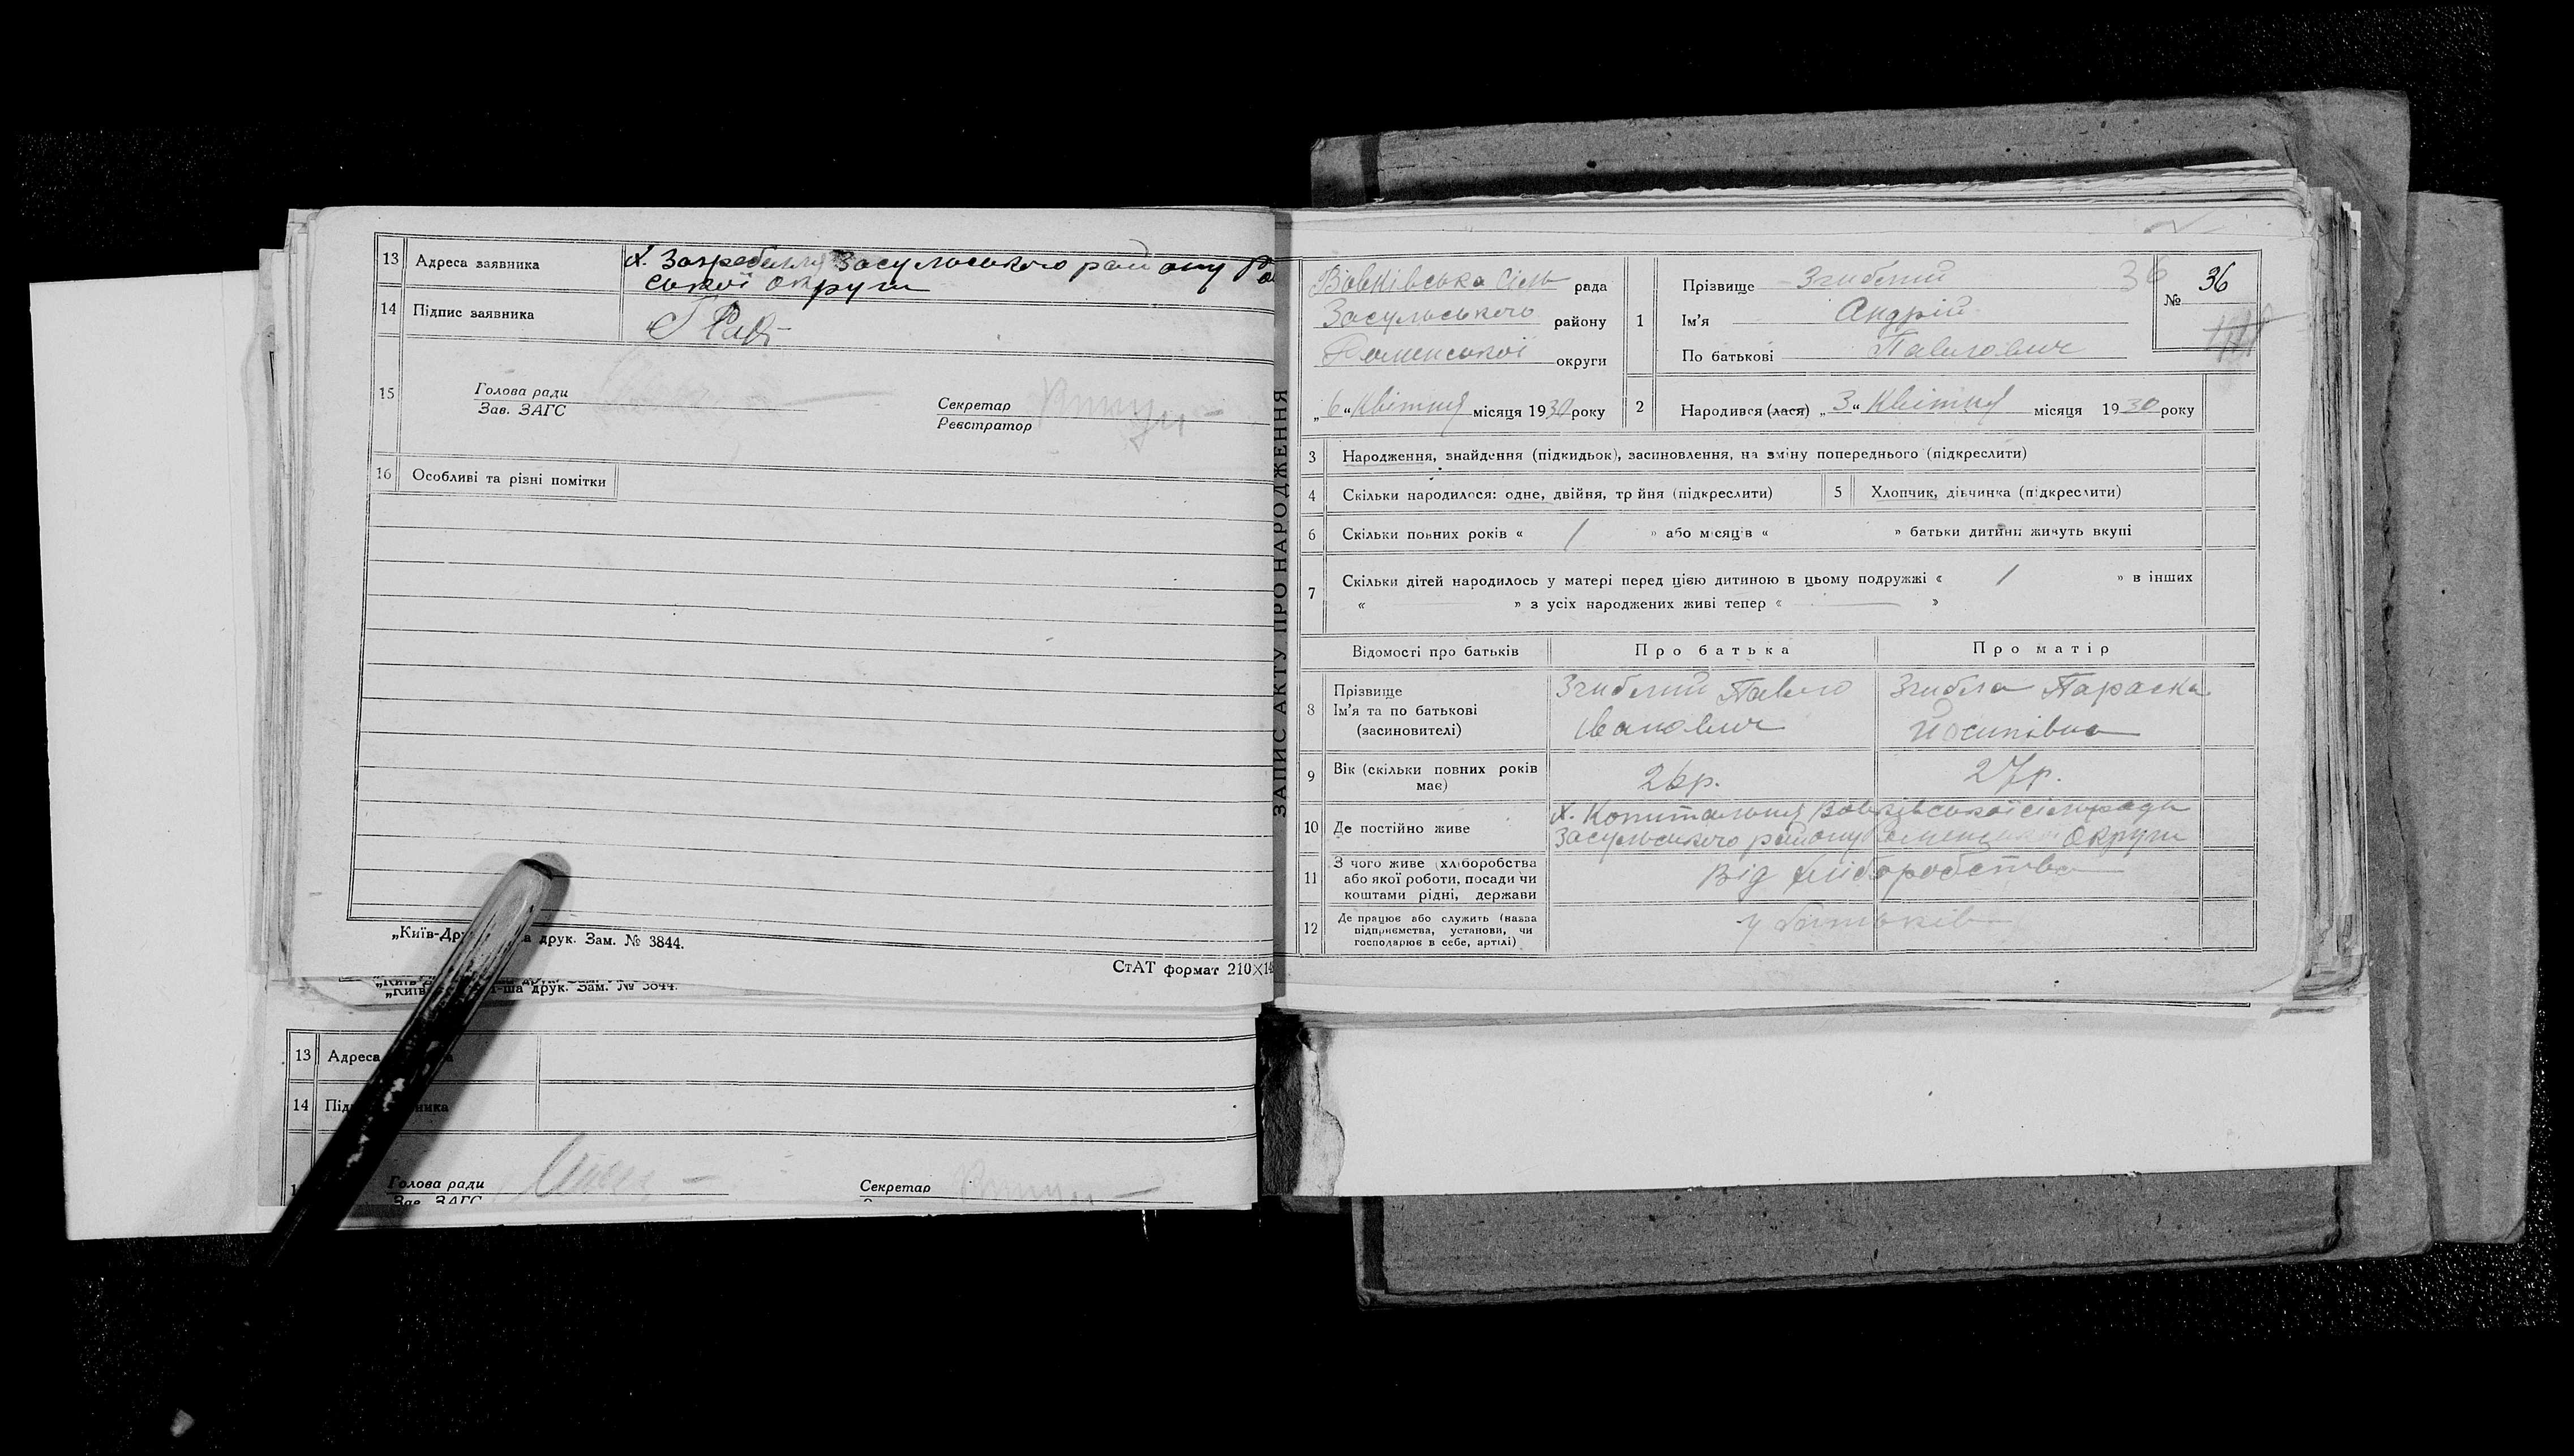 13 Адреса заявника х. Загребелля Засульського району Ро
ської округи
14 Підпис заявника
15 Голова ради
Зав. ЗАГС
Секретар
Реєстратор
16 Особливі та різні помітки
„Київ-Др а друк. Зам. № 3844.
СтАТ формат 210×14
-ша друк. Зам. № 3844.
13 Адреса а
14 Під ника
Голова ради
Зав. ЗАГС
Секретар
ЗАПИС АКТУ ПРО НАРОДЖЕННЯ
Вовківська Сіль рада
Засульського району
Роменської округи
„6“ Квітня місяця 1930 року
1 Прізвище Згиблий
Ім'я Андрій
По батькові Павлович
36
№ 36
2 Народився (лася) „3“ Квітня місяця 1930 року
3 Народження, знайдення (підкидьок), засиновлення, на зміну попереднього (підкреслити)
4 Скільки народилося: одне, двійня, трійня (підкреслити) 5 Хлопчик, дівчинка (підкреслити)
6 Скільки повних років « 1 » або місяців « » батьки дитини живуть вкупі
7 Скільки дітей народилось у матері перед цією дитиною в цьому подружжі « 1 » в інших
« — » з усіх народжених живі тепер « — »
Відомості про батьків Про батька Про матір
8 Прізвище
Ім'я та по батькові
(засиновителі)
Згиблий Павло
Іванович
Згибла Параска
Йосипівна
9 Вік (скільки повних років
має)
26р. 27р.
10 Де постійно живе
х. Вовківської сільради
Засульського району Роменської Округи
11 З чого живе (хліборобства
або якої роботи, посади чи
коштами рідні, держави
Від хліборобства
12 Де працює або служить (назва
підприємства, установи, чи
господарює в себе, артілі)
У батьків